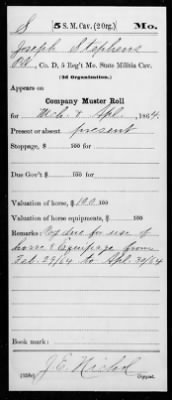 S 5 S. M. Cav. (2 Org.) Mo.
Joseph Stephens
Co. D, 5 Reg't Mo. State Militia Cav.
(2d Organization.)
Appears on
Company Muster Roll
for Mch & Apl, 1864.
Present or absent present
Stoppage, $ 100 for
Due Gov't $ 100 for
Valuation of horse, $ 100 100
Valuation of horse equipments, $ 100
Remarks: Pay due for use of
horse & Equipage from
Feb 29/64 to Apl 30/64
Book mark:
J. E. Nichol
(358e) Copyist.